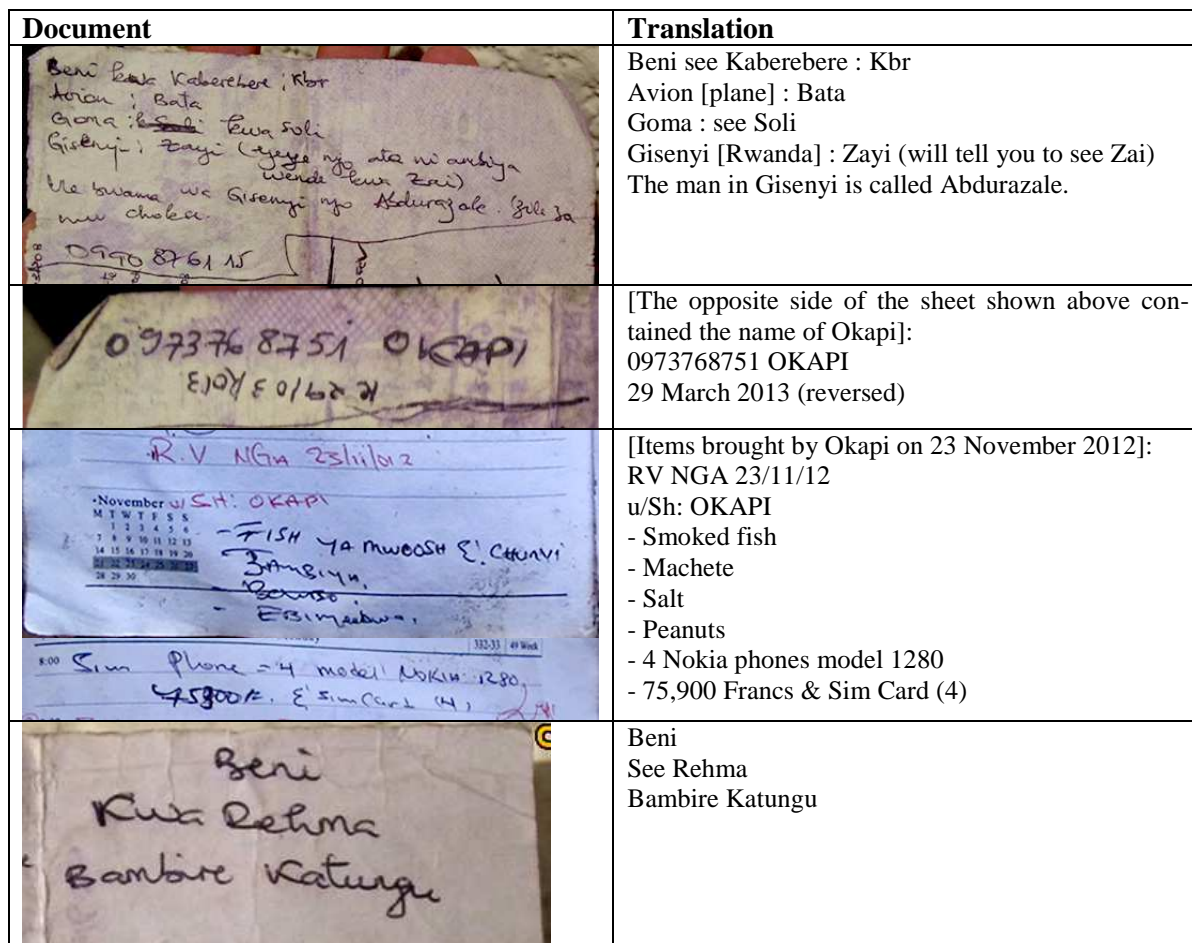 Document
Translation
Beni kwa Kaberebere ; Kbr
Avion ; Bata
Goma : kwa Soli
Gisenyi : Zayi (
wende kwa Zai)
wa Gisenyi ngo Abdurazale.
mu choka.
0990 8761 15
Beni see Kaberebere : Kbr
Avion [plane] : Bata
Goma : see Soli
Gisenyi [Rwanda] : Zayi (will tell you to see Zai)
The man in Gisenyi is called Abdurazale.
0973768751 OKAPI
[The opposite side of the sheet shown above con-
tained the name of Okapi]:
0973768751 OKAPI
29 March 2013 (reversed)
R.V NGA 23/11/012
u/SH: OKAPI
November
M T W T F S S
1 2 3 4 5 6
7 8 9 10 11 12 13
14 15 16 17 18 19 20
21 22 23 24 25 26 27
28 29 30
- FISH YA MWOOSH &! CHUNVI
8:00 Sim Phone - 4 model NOKIA 1280,
332-33 49 Week
& Sim Card (4)
[Items brought by Okapi on 23 November 2012]:
RV NGA 23/11/12
u/Sh: OKAPI
- Smoked fish
- Machete
- Salt
- Peanuts
- 4 Nokia phones model 1280
- 75,900 Francs & Sim Card (4)
Beni
Kwa Rehma
Bambire Katungu
Beni
See Rehma
Bambire Katungu